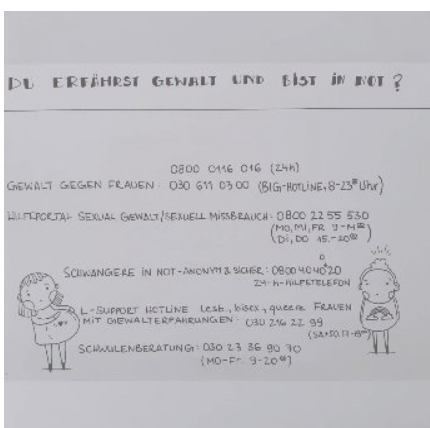 DU ERFÄHRST GEWALT UND BIST IN NOT ?
0800 0116 016 (24h)
GEWALT GEGEN FRAUEN: 030 611 03 00 (BIG-HOTLINE, 8-23⁰⁰ Uhr)
HILFEPORTAL SEXUAL GEWALT/SEXUELL MISSBRAUCH: 0800 22 55 530
(MO, MI, FR 9-14⁰⁰)
(DI, DO 15.-20⁰⁰)
SCHWANGERE IN NOT - ANONYM & SICHER: 0800 40 40 020
24-h-HILFETELEFON
L-SUPPORT HOTLINE lesb., bisex., queere FRAUEN
MIT GEWALTERFAHRUNGEN: 030 216 22 99
SCHWULENBERATUNG: 030 23 36 90 70
(MO-Fr 9-20⁰⁰)